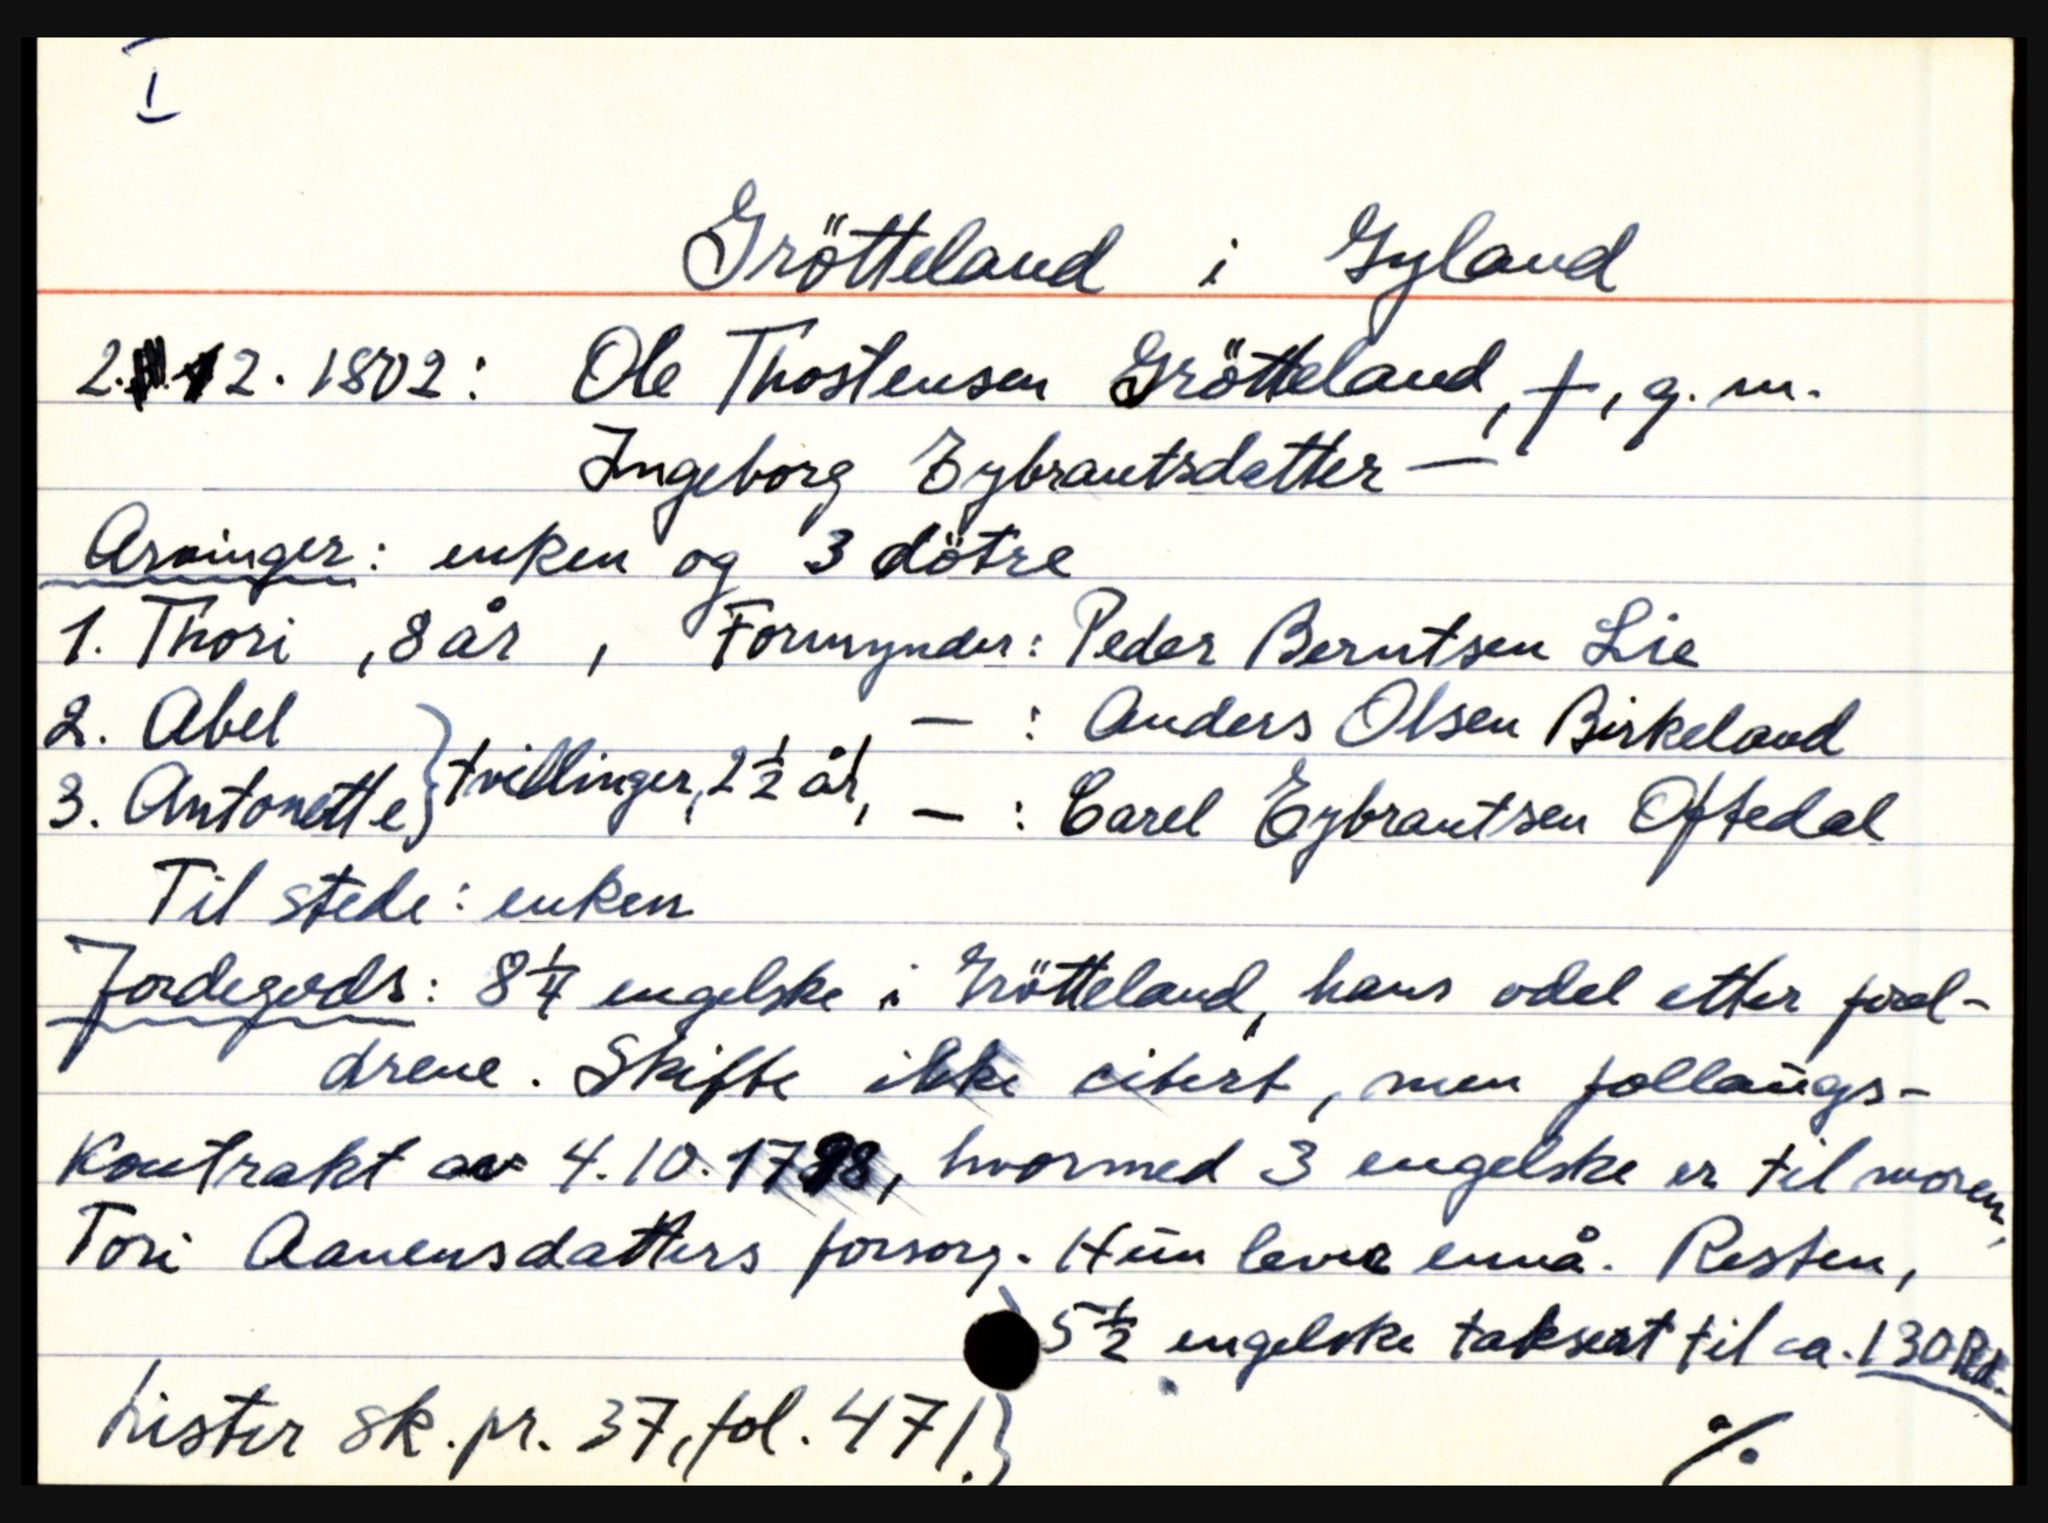 I
Grötteland i Gyland
2.12.1802: Ole Thostensen Grötteland, †, g. m.
Ingeborg Eybrantsdatter —
Arvinger: enken og 3 dötre
1. Thori , 8 år , Formynder: Peder Berntsen Lie
2. Abel — : Anders Olsen Birkeland
} tvillinger, 2 1/2 år,
3. Antonette — : Carel Eybrantsen Oftedal
Til stede: enken
Jordegods: 8 1/4 engelske i Grötteland, hans odel etter forel-
drene. Skifte ikke citert, men follaugs-
kontrakt av 4.10.1798, hvormed 3 engelske er til moren,
Tori Aanensdatters forsorg. Hun lever ennå. Resten,
5 1/2 engelske taksert til ca. 130 Rd.
Lister sk.pr. 37, fol. 471.}
%